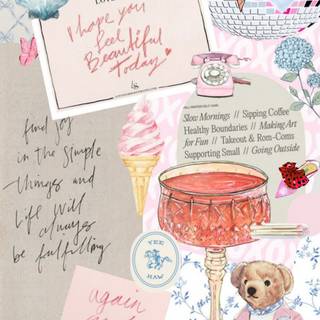 I hope you
feel
Beautiful
Today
Slow Mornings // Sipping Coffee
Healthy Boundaries // Making Art
for Fun // Takeout & Rom-Coms
Supporting Small // Going Outside
find joy
in the simple
things and
life will
always
be fulfilling.
YEE
HAW
again